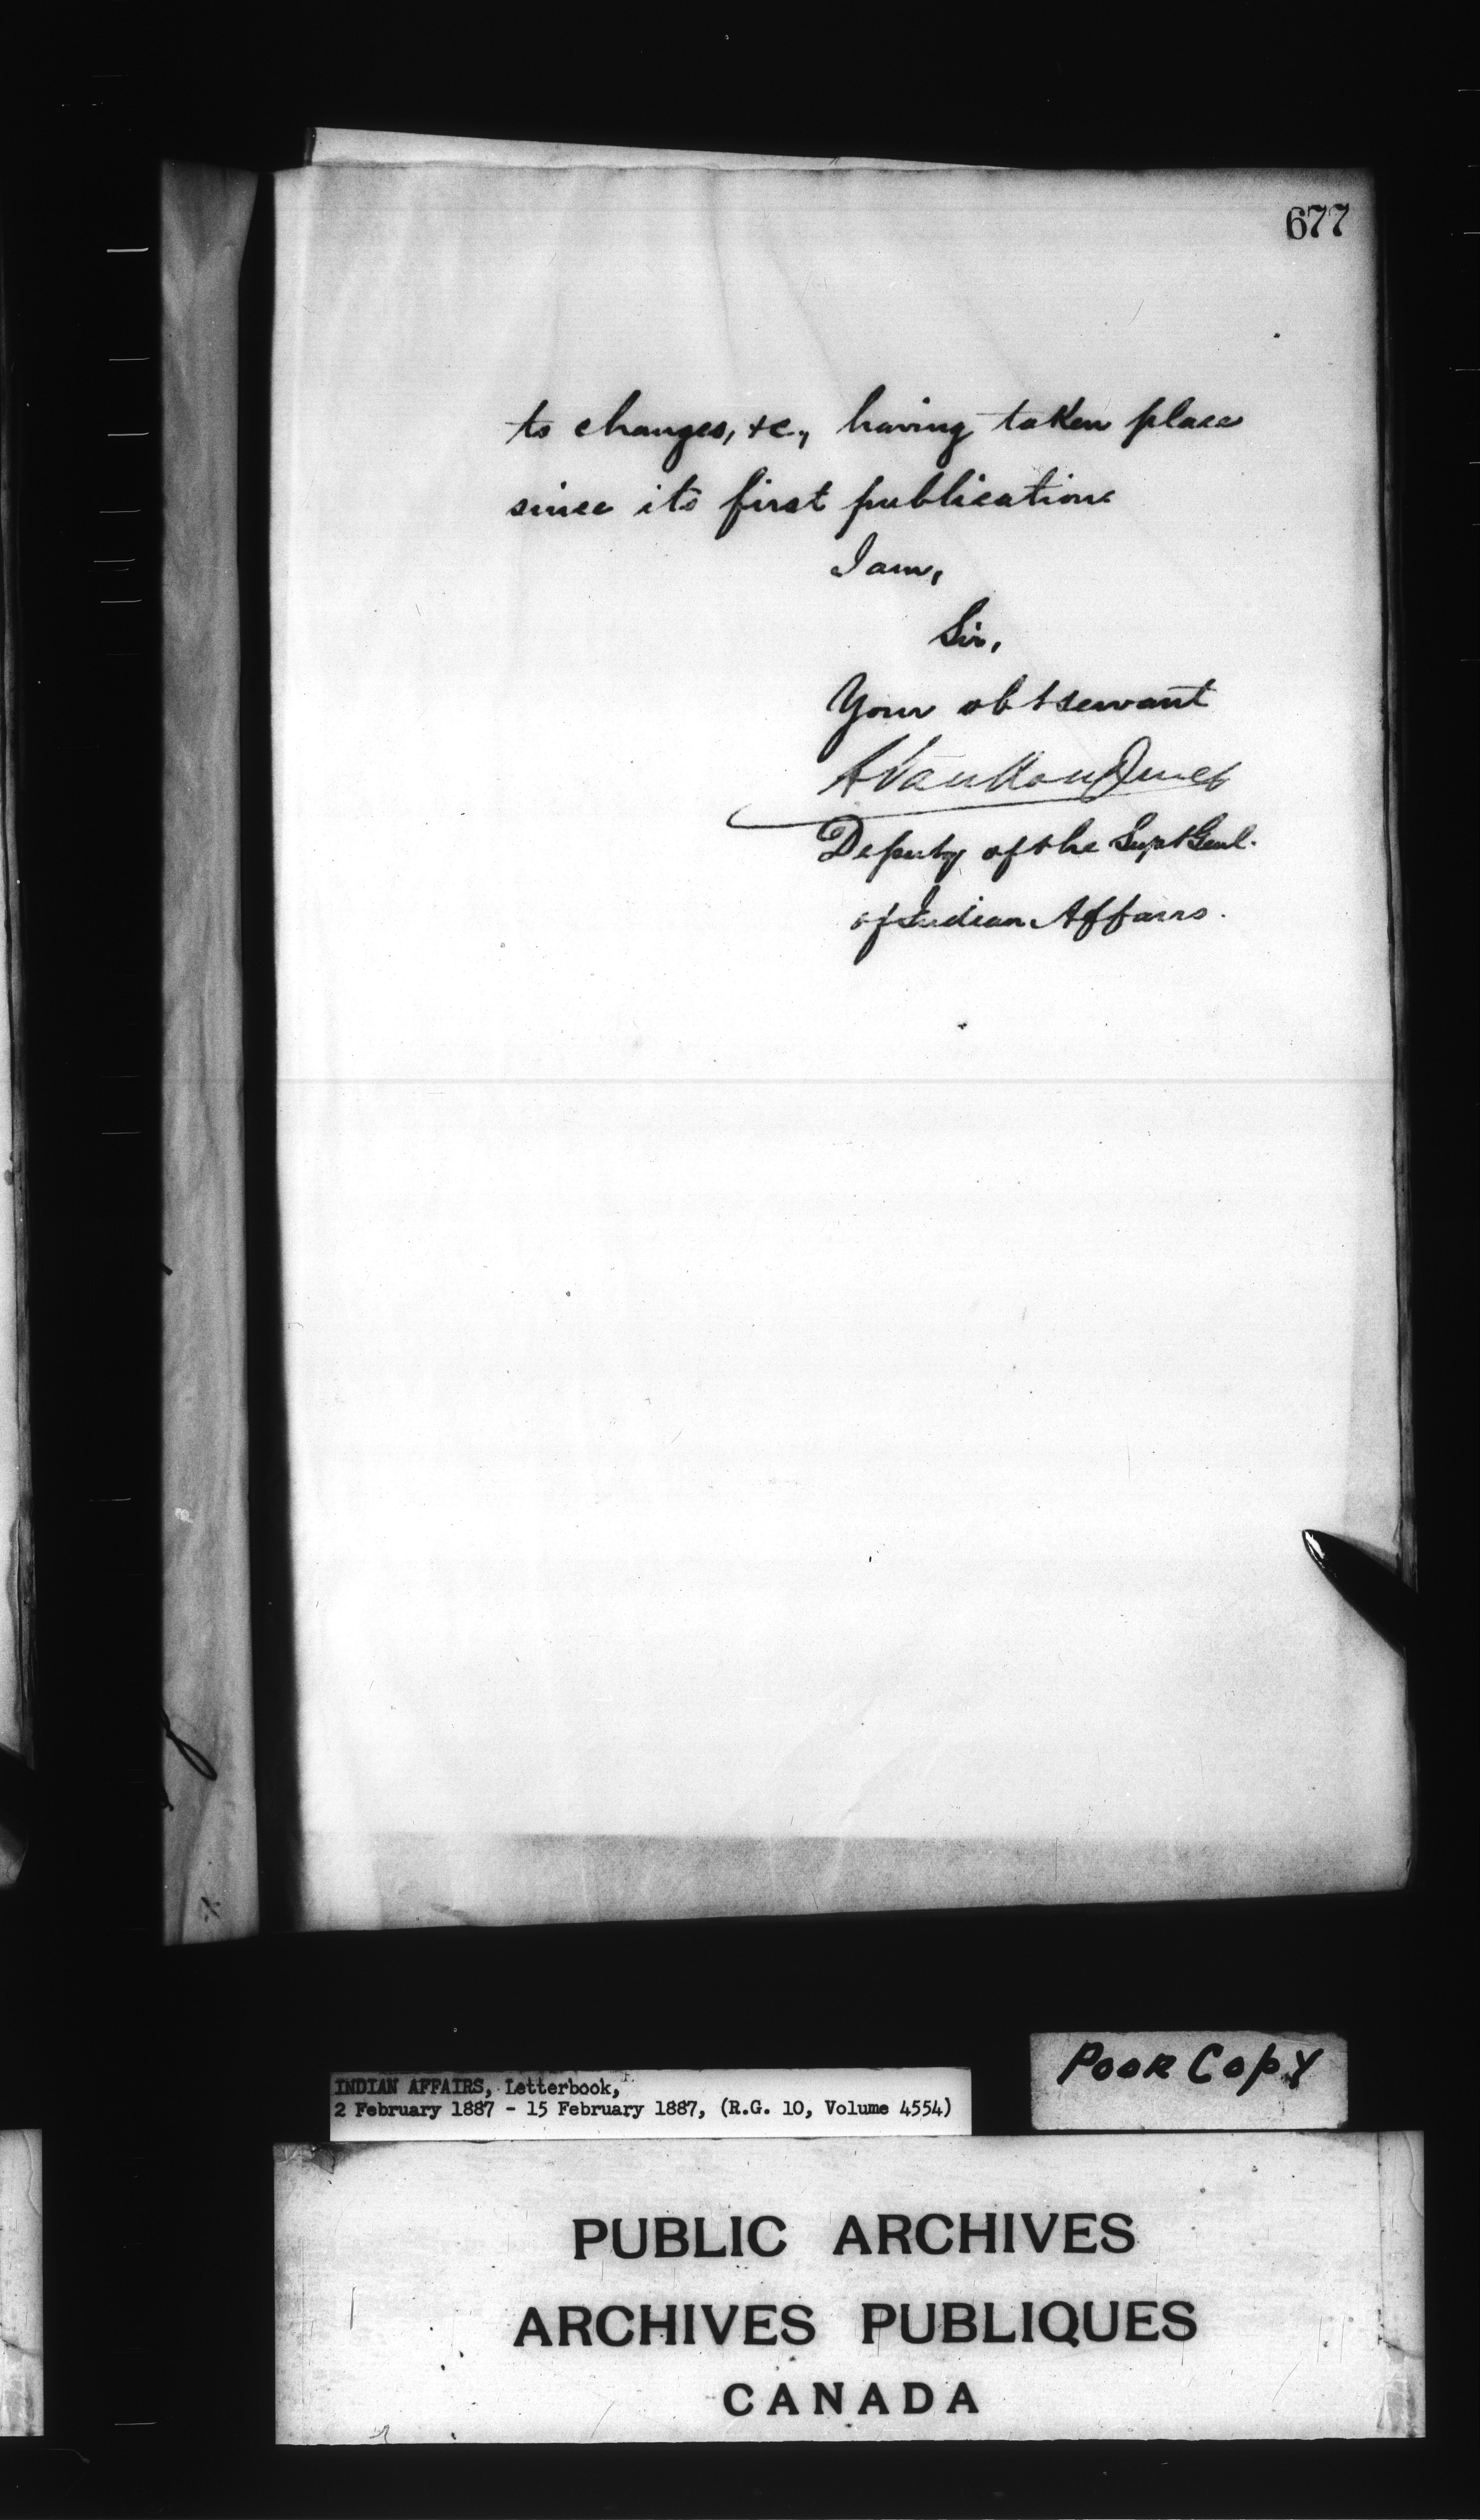 677
to changes, &c., having taken place
since its first publication
I am,
Sir,
Your obt servant
L VanKoughnet
Deputy of the Supt Genl.
of Indian Affairs.
Poor Copy
INDIAN AFFAIRS, Letterbook,
2 February 1887 - 15 February 1887, (R.G. 10, Volume 4554)
PUBLIC ARCHIVES
ARCHIVES PUBLIQUES
CANADA